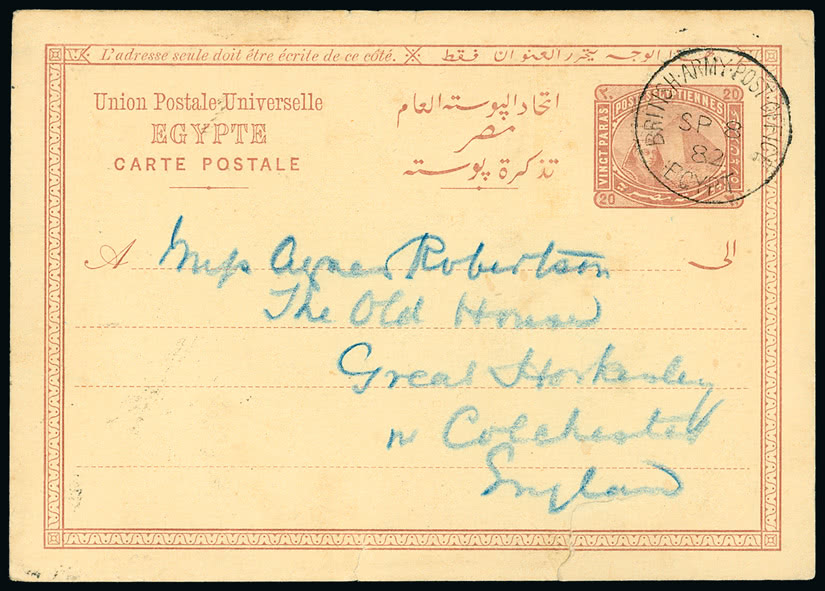 L'adresse seule doit être écrite de ce côté. ※ الوجه يتحرر العنوان فقط
Union Postale Universelle
EGYPTE
CARTE POSTALE
اتحاد البوسته العام
مصر
تذكرة بوسته
٢٠ 20
POSTES EGYPTIENNES
VINGT PARAS
20
BRITISH·ARMY·POST·OFFICE
SP 8
82
EGYPT
A Miss Agnes Robertson الى
The Old House
Great Horkesley
nr Colchester
England